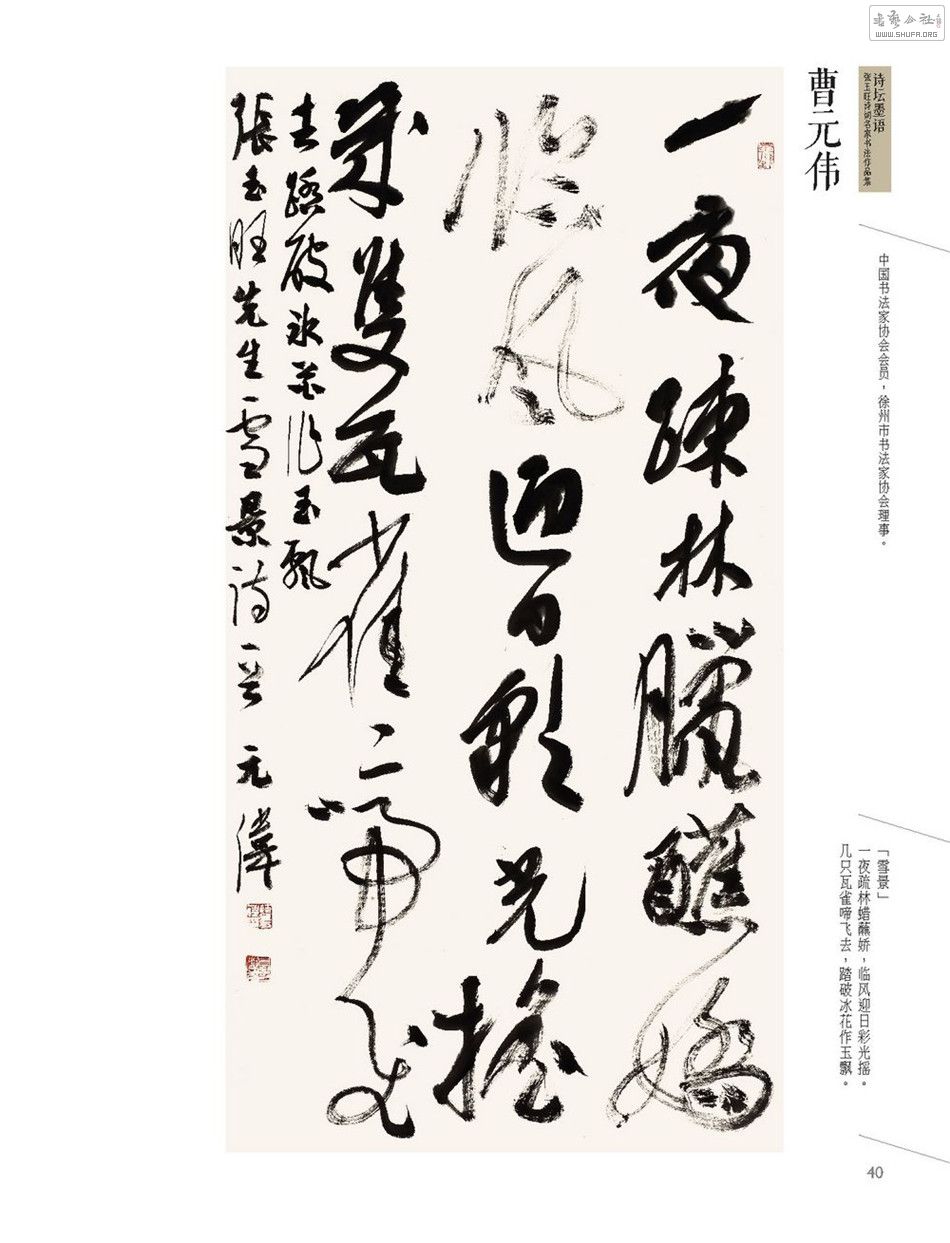 书艺公社
WWW.SHUFA.ORG
诗坛墨语
张玉旺诗词名家书法作品集
曹元伟
中国书法家协会会员，徐州市书法家协会理事。
一夜疎林臘蘸嬌
臨風迎日彩光搖
幾隻瓦雀啼飛
去踏破冰花作玉飄
張玉旺先生雪景詩一首 元偉
「雪景」
一夜疏林蜡蘸娇，临风迎日彩光摇。
几只瓦雀啼飞去，踏破冰花作玉飘。
40